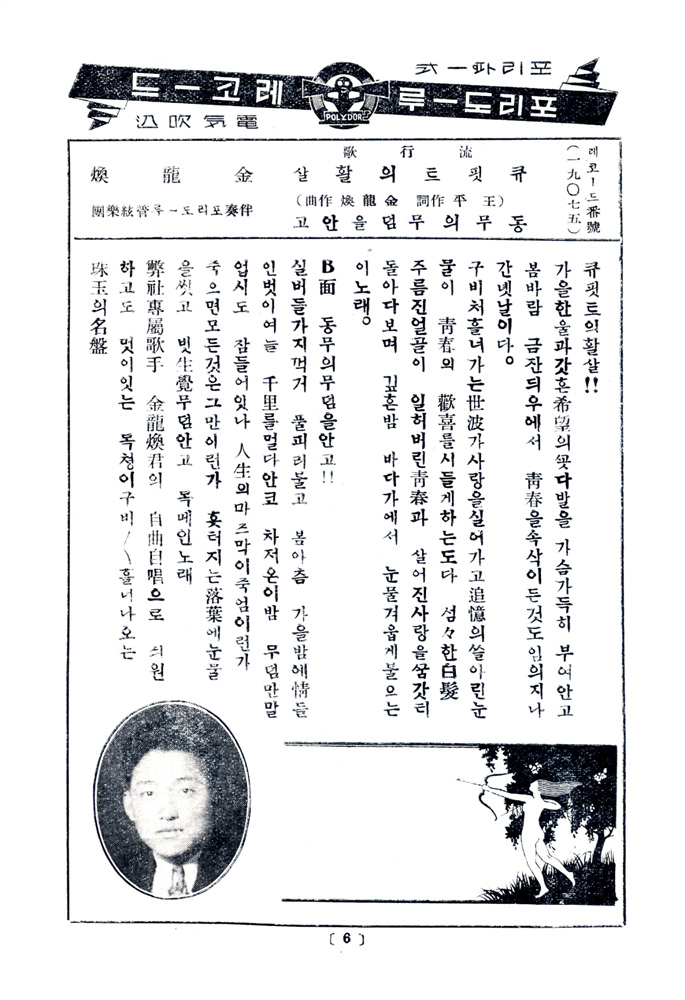 포리파ー式
포리도ー루 레코ー드
POLYDOR
電気吹込
레코ー드番號
(一九〇七五)
流行歌
큐핏트의활살 金龍煥
(王平作詞 金龍煥作曲)
동무의무덤을안고
伴奏포리도ー루管絃樂團
큐핏트의활살!!
가을한울과갓흔希望의꼿다발을 가슴가득히 부여안고
봄바람 금잔듸우에서 靑春을속삭이든것도임의지나
간녯날이다。
구비처흘너가는世波가사랑을실어가고追憶의쓸아린눈
물이 靑春의 歡喜를시들게하는도다 섬々한白髮
주름진얼골이 일허버린靑春과 살어진사랑을꿈갓티
돌아다보며 깁흔밤 바다가에서 눈물겨웁게불으는
이노래。
B面 동무의무덤을안고!!
실버들가지꺽거 풀피리불고 봄아츰 가을밤에情들
인벗이여늘 千里를멀다안코 차저온이밤 무덤만말
업시도 잠들어잇나 人生의마즈막이죽엄이런가
죽으면모든것은그만이런가 흣터지는落葉에눈물
을씻고 벗生覺무덤안고 목메인노래
弊社專屬歌手 金龍煥君의 自曲自唱으로 씌원
하고도 멋이잇는 목청이구비〱흘너나오는
珠玉의名盤
〔 6 〕